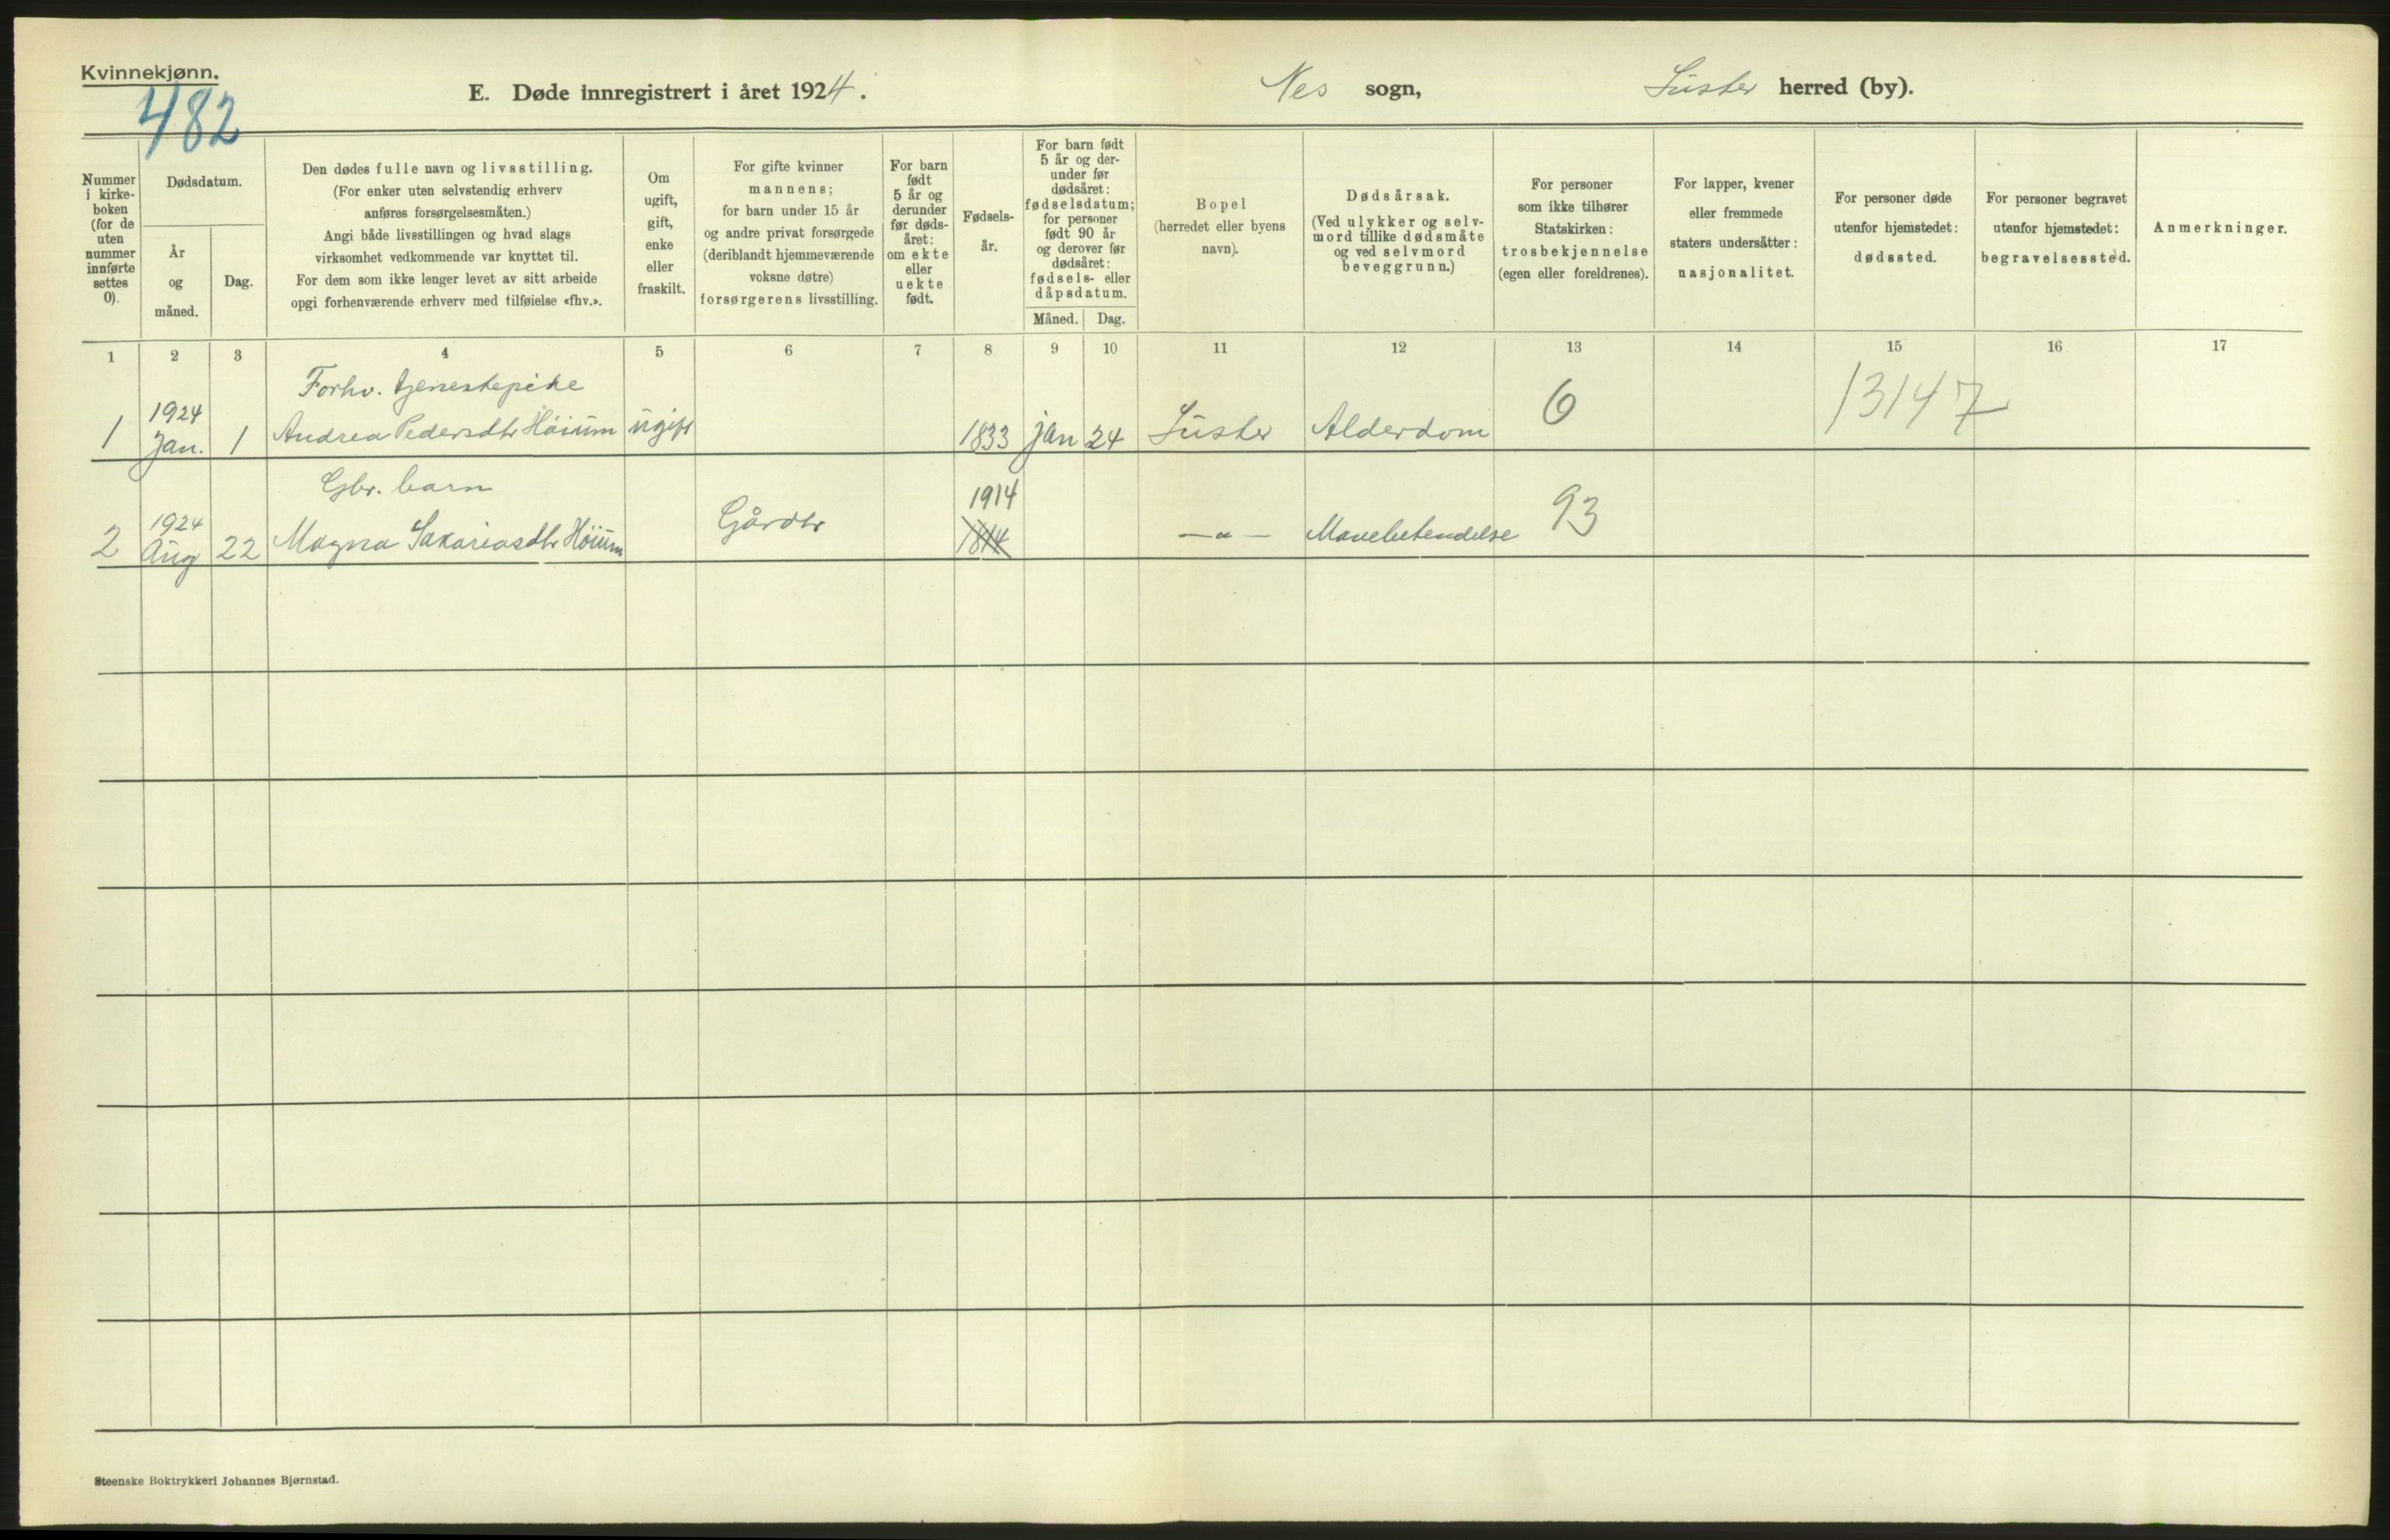 Kvinnekjønn.
482
E. Døde innregistrert i året 1924.
Nes sogn,
Luster herred (by).
Nummer
i kirke-
boken
(for de
uten
nummer
innførte
settes
0).
Dødsdatum.
År
og
måned.
Dag.
Den dødes fulle navn og livsstilling.
(For enker uten selvstendig erhverv
anføres forsørgelsesmåten.)
Angi både livsstillingen og hvad slags
virksomhet vedkommende var knyttet til.
For dem som ikke lenger levet av sitt arbeide
opgi forhenværende erhverv med tilføielse «fhv.».
Om
ugift,
gift,
enke
eller
fraskilt.
For gifte kvinner
mannens;
for barn under 15 år
og andre privat forsørgede
(deriblandt hjemmeværende
voksne døtre)
forsørgerens livsstilling.
For barn
født
5 år og
derunder
før døds-
året:
om ekte
eller
uekte
født.
Fødsels-
år.
For barn født
5 år og der-
under før
dødsåret:
fødselsdatum;
for personer
født 90 år
og derover før
dødsåret:
fødsels- eller
dåpsdatum.
Måned. Dag.
Bopel
(herredet eller byens
navn).
Dødsårsak.
(Ved ulykker og selv-
mord tillike dødsmåte
og ved selvmord
beveggrunn.)
For personer
som ikke tilhører
Statskirken:
trosbekjennelse
(egen eller foreldrenes).
For lapper, kvener
eller fremmede
staters undersåtter:
nasjonalitet.
For personer døde
utenfor hjemstedet:
dødssted.
For personer begravet
utenfor hjemstedet:
begravelsessted.
Anmerkninger.
1 2 3 4 5 6 7 8 9 10 11 12 13 14 15 16 17
Forhv. tjenestepike
1924
1 Jan. 1 Andrea Pedersdtr Høium ugift 1833 jan 24 Luster Alderdom 6 13147
Gbr. barn
1924 1914
2 Aug 22 Magna Sakariasdtr Høium Gårdbr 1814 — " — Mavebetendelse 93
Steenske Boktrykkeri Johannes Bjørnstad.